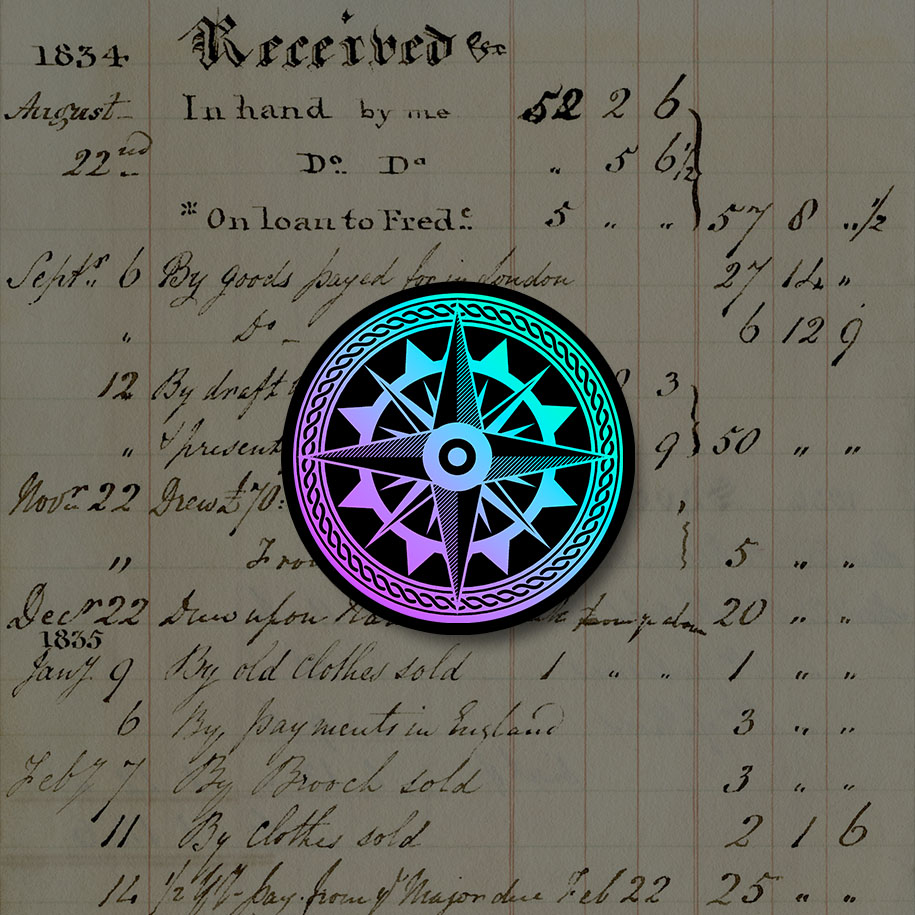 1834 Received &c
August In hand by me 52 2 6
22nd Do. Do 〃 5 6½
※ On loan to Fred.c 5 〃 〃 57 8 〃½
Septr. 6 By goods payed for in London 27 14 〃
〃 Do 6 12 9
12 By draft 3
〃 present 9 50 〃 〃
Novr 22 Drew £70
〃 From 5 〃 〃
Decr 22 Drew upon 20 〃 〃
1835
Jany. 9 By old clothes sold 1 〃 〃 1 〃 〃
6 By payments in England 3 〃 〃
Feby 7 By Brooch sold 3 〃 〃
11 By clothes sold 2 1 6
14 ½ pay from ye Major due Feb 22 25 〃 〃